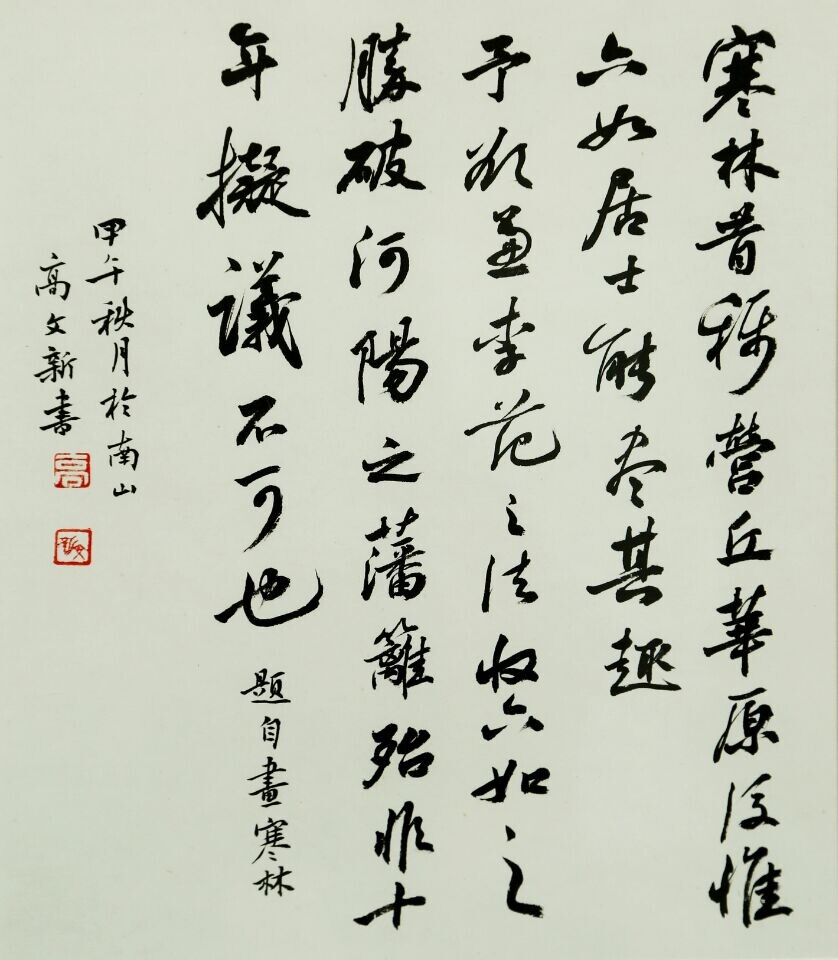 寒林昔稱營丘華原後惟
六如居士能盡其趣
予欲兼李范之法收六如之
勝破河陽之藩籬殆非十
年擬議不可也
題自畫寒林
甲午秋月於南山
高文新書
高